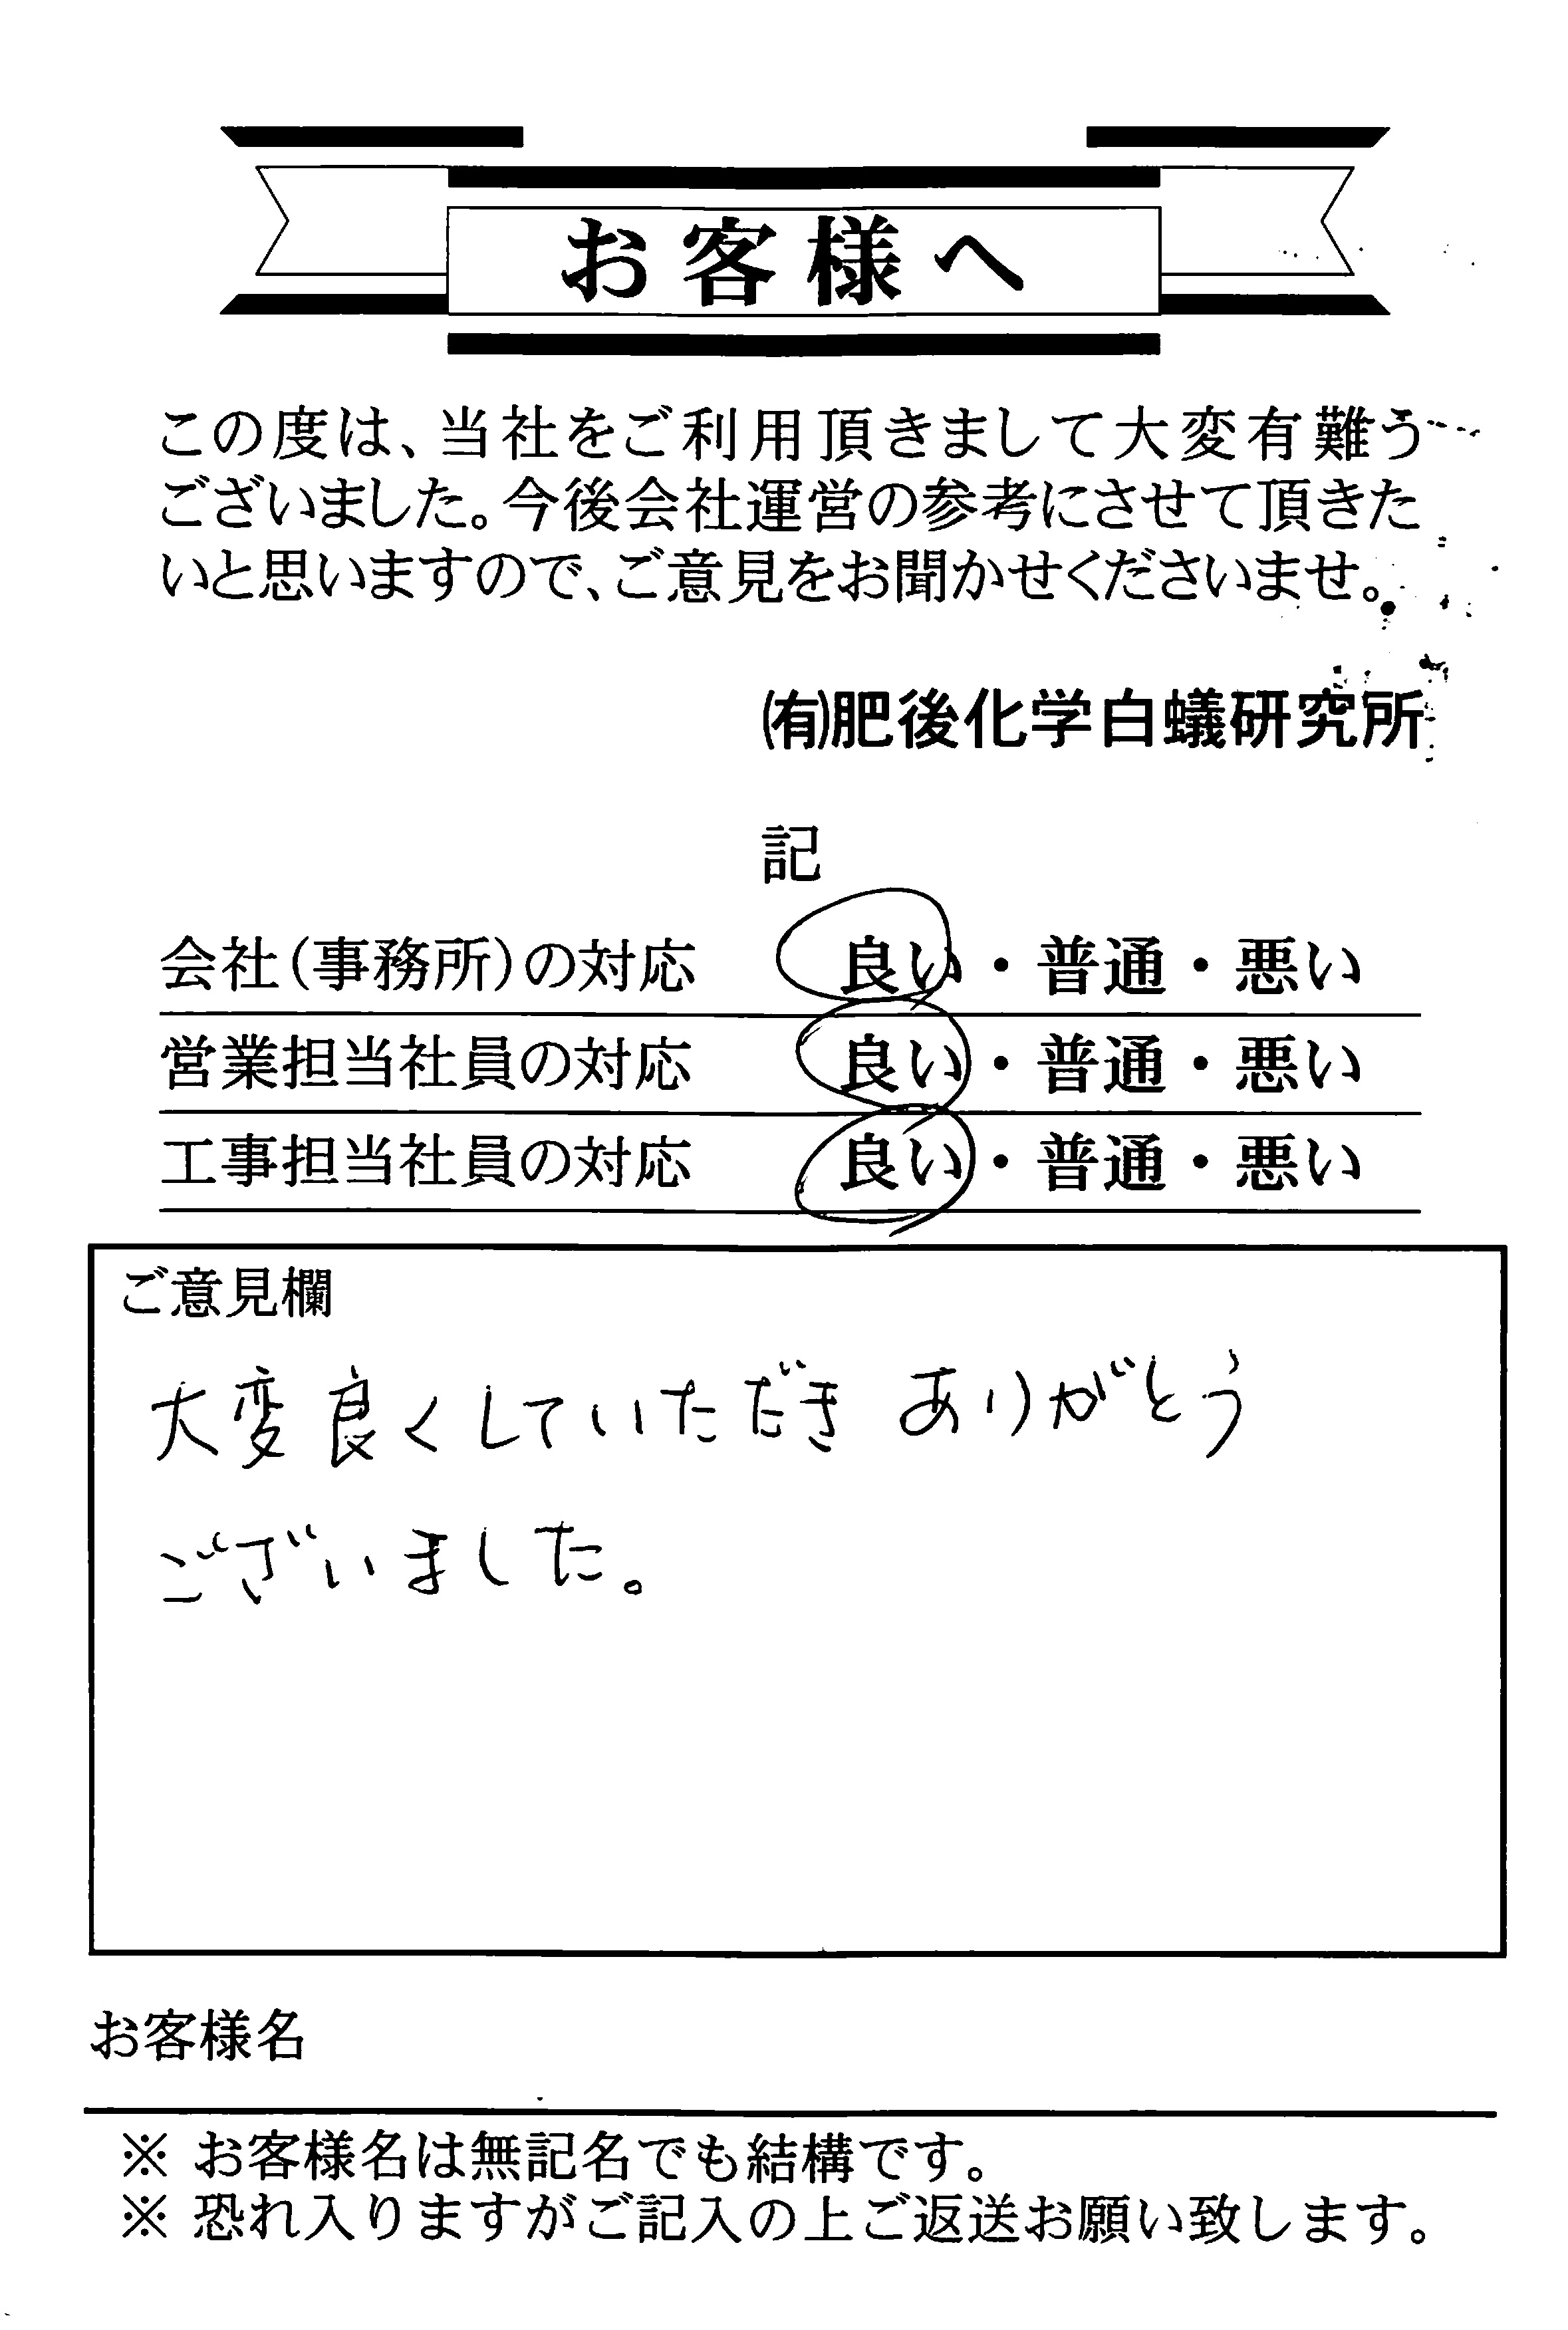 お客様へ
この度は、当社をご利用頂きまして大変有難う
ございました。今後会社運営の参考にさせて頂きた
いと思いますので、ご意見をお聞かせくださいませ。
㈲肥後化学白蟻研究所
記
会社(事務所)の対応 良い・普通・悪い
営業担当社員の対応 良い・普通・悪い
工事担当社員の対応 良い・普通・悪い
ご意見欄
大変良くしていただき ありがとう
ございました。
お客様名
※ お客様名は無記名でも結構です。
※ 恐れ入りますがご記入の上ご返送お願い致します。